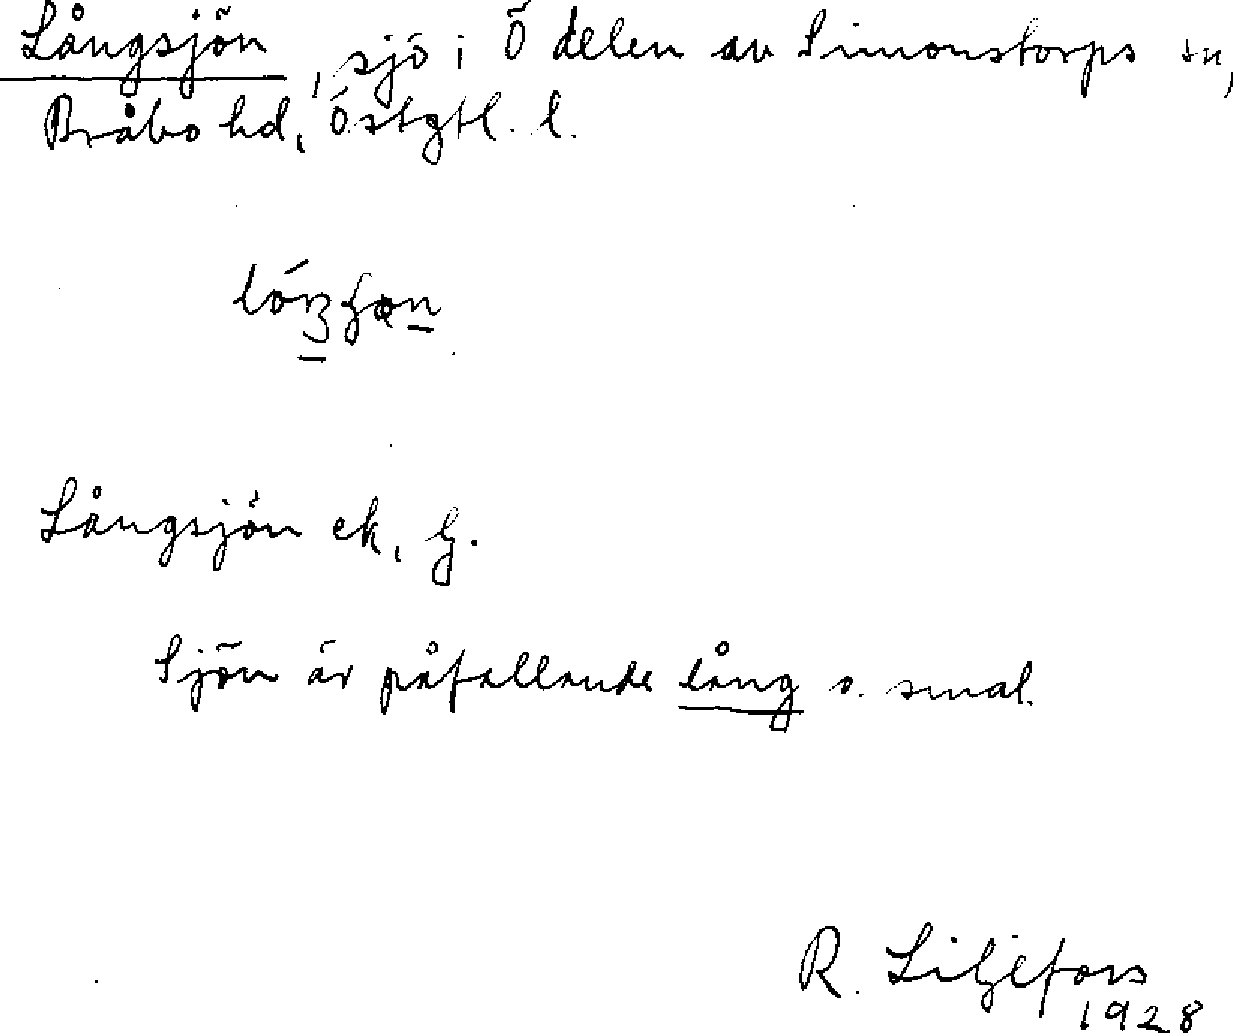 Långsjön, sjö i Ö delen av Simonstorps sn,
Bråbo hd, Östgtl. l.
Långsjön ek,
Sjön är påfallande lång o. smal.
R. Liljefors
1928